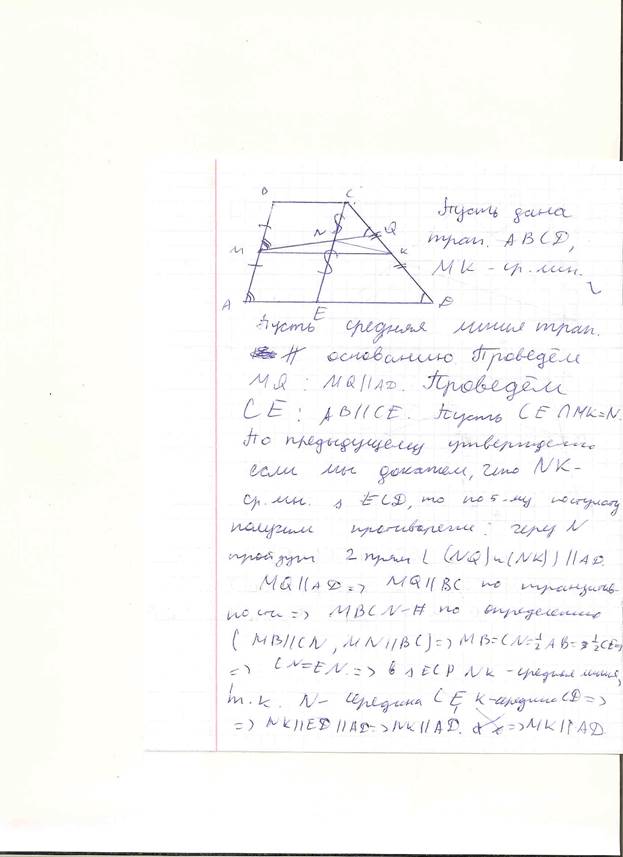 B C
N Q
M K
A E D
Пусть дана
трап. ABCD,
MK - ср. лин.
Пусть средняя линия трап.
∦ основанию Проведём
MQ : MQ || AD. Проведём
CE : AB || CE. Пусть CE ∩ MK = N.
По предыдущему утверждению
если мы докажем, что NK -
ср. лин. △ ECD, то по 5-му постулату
получим противореч : через N
пройдут 2 прям ( (NQ) и (NK) ) || AD.
MQ || AD => MQ || BC по транзитив-
ности => MBCN - П по определению
( MB || CN , MN || BC) => MB = CN = ½ AB = ½ CE
=> CN = EN. => в △ ECD NK - средняя линия,
т.к. N - середина CE, K - середина CD =>
=> NK || ED || AD => NK || AD. => MK || AD